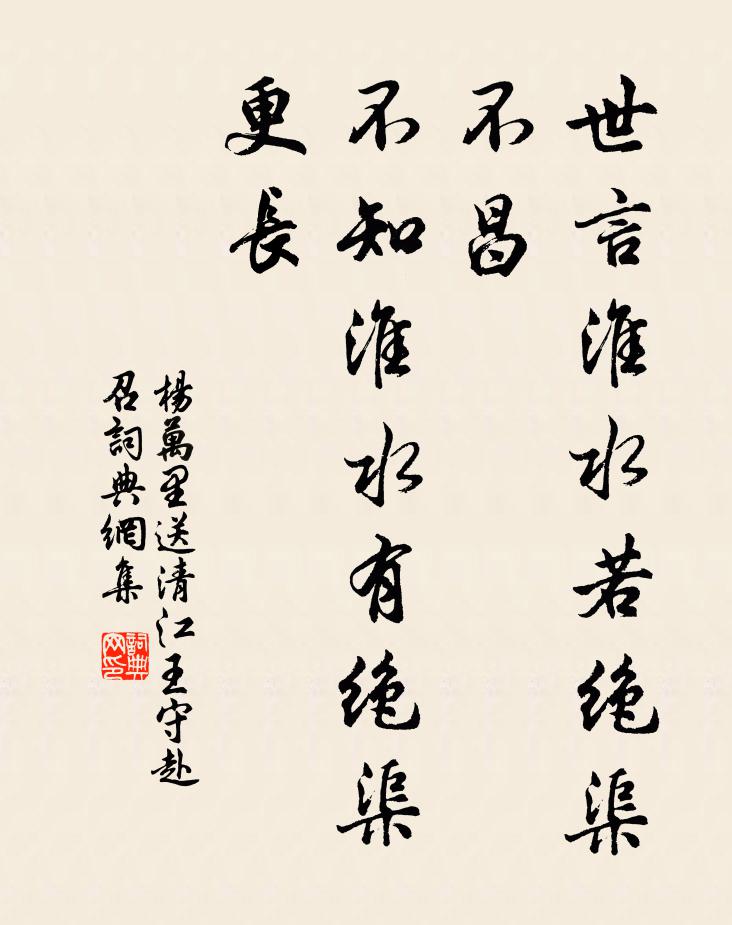 世言淮水若绝渠
不昌
不知淮水有绝渠
更長
楊萬里送清江王守赴
召詞典網集
詞典網印